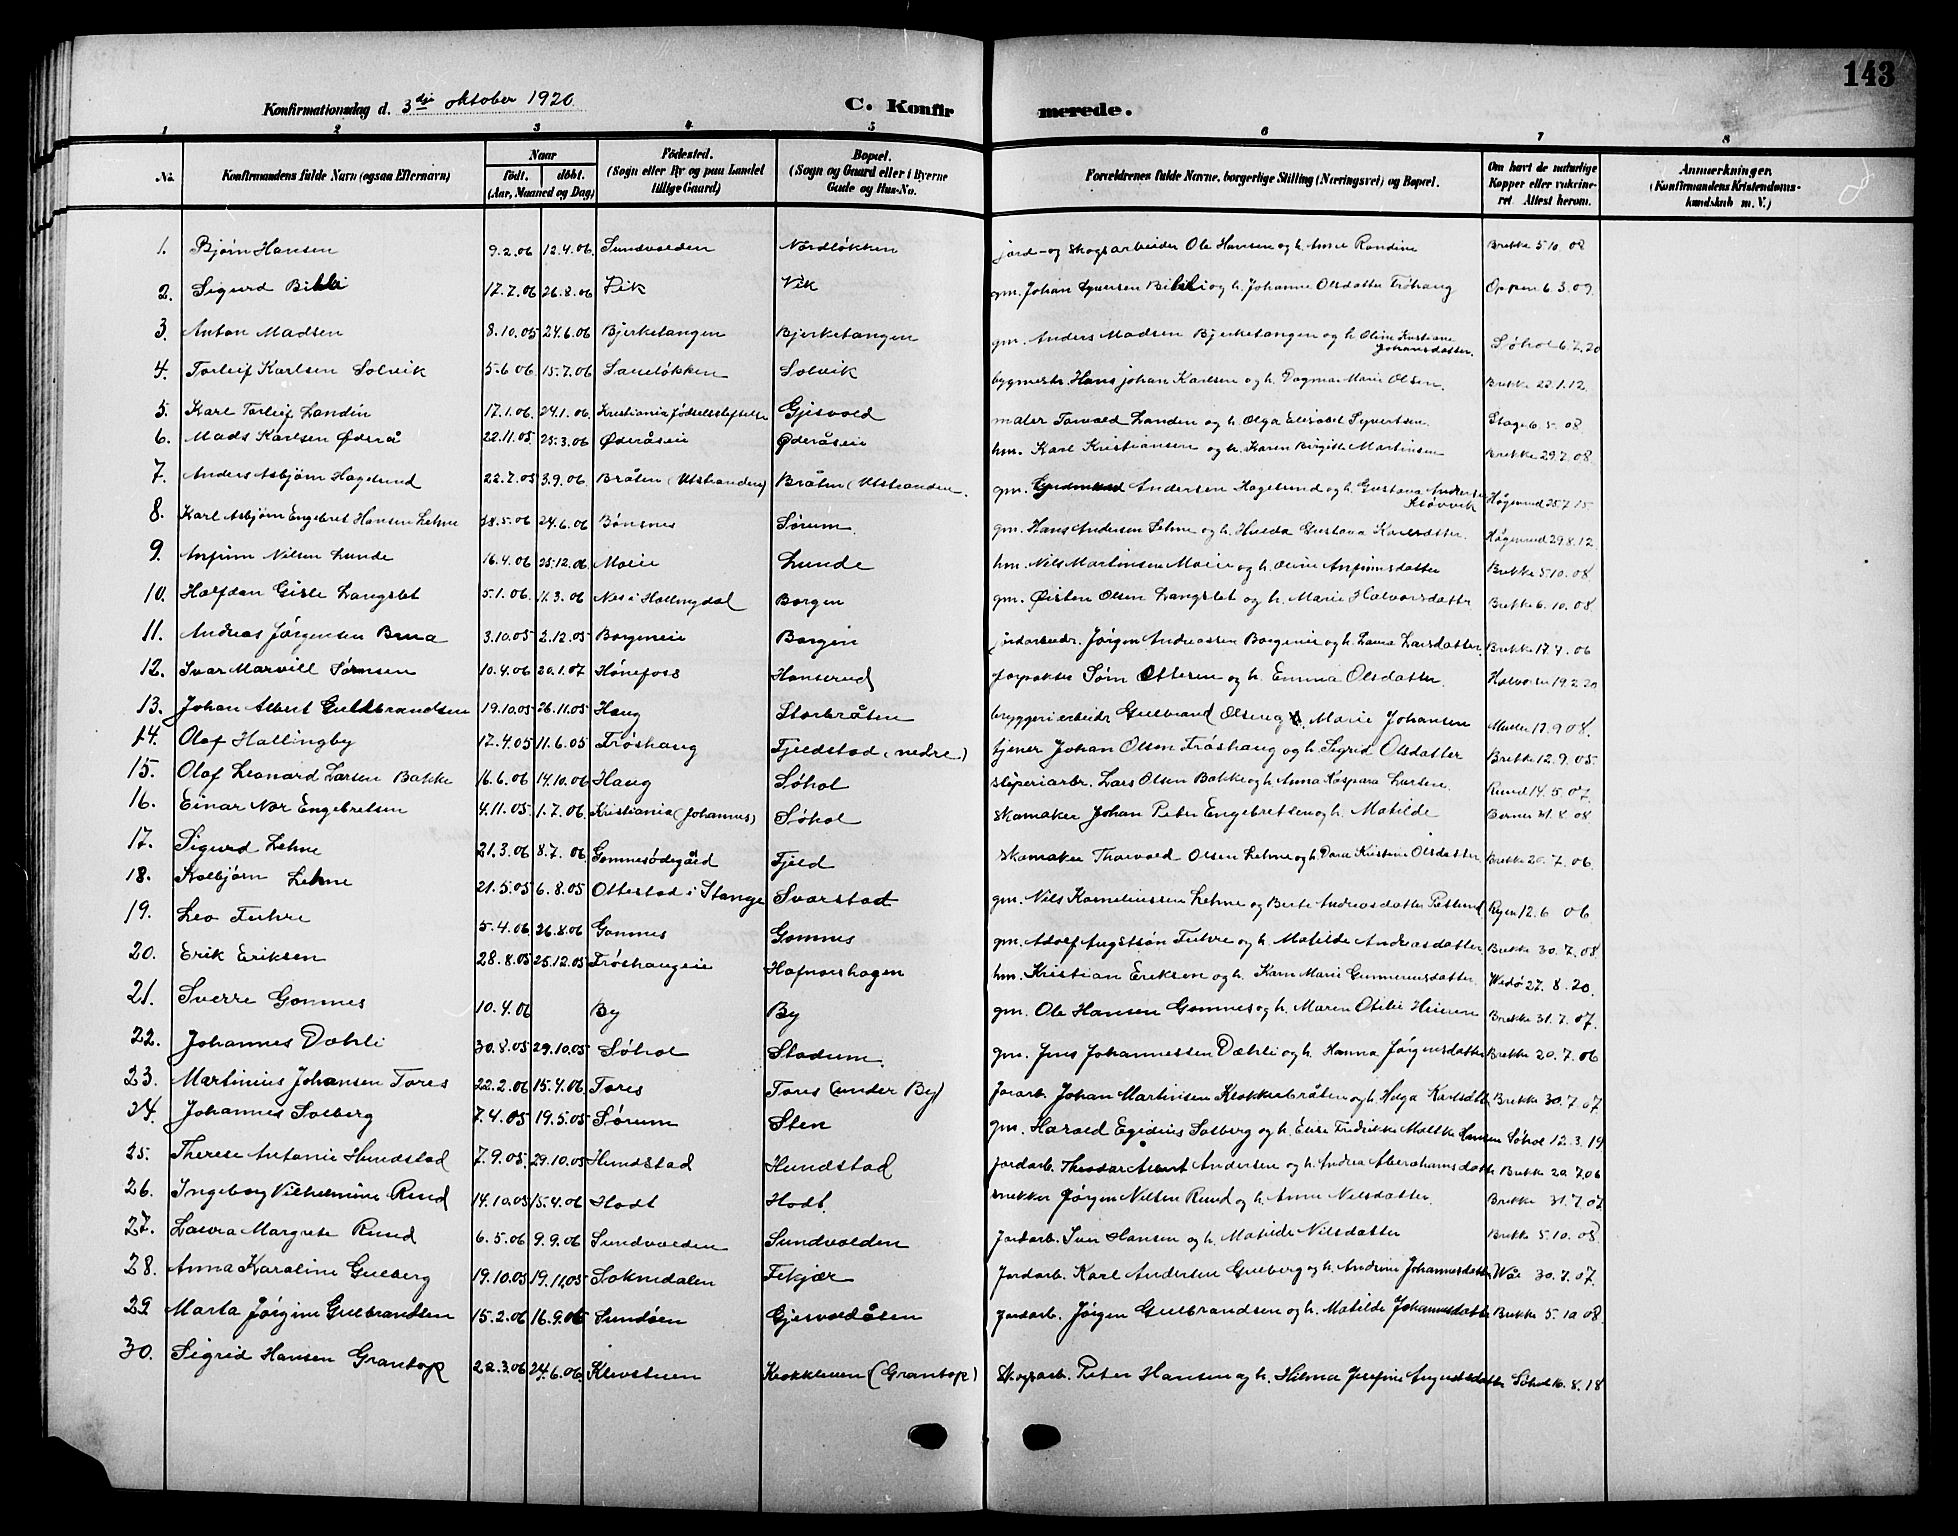 143
Konfirmationsdag d. 3dje oktober 1920
C. Konfirmerede.
1 2 3 4 5 6 7 8
No. Konfirmandens fulde Navn (ogsaa Efternavn) Naar født. døbt. (Aar, Maaned og Dag) Fødested. (Sogn eller By og paa Landet tillige Gaard) Bopæl. (Sogn og Gaard eller i Byerne Gade og Hus-No. Forældrenes fulde Navne, borgerlige Stilling (Næringsvei) og Bopæl. Om havt de naturlige Kopper eller vakcineret. Attest herom. Anmærkninger. (Konfirmandens Kristendomskundskab m. V.)
1. Bjørn Hansen 9.2.06 12.4.06 Sundvolden Nordløkken jord- og skogsarbeider Ole Hansen og h. Anne Randine Brekke 5 10. 08
2. Sigurd Bihli 17.7.06 26.8.06 Vik Vik gm. Johan Syversen Bihli og h. Johanne Olsdatter Frøhaug Oppen 6.3.09.
3. Anton Madsen 8.10.05 24.6.06 Bjerketangen Bjerketangen gm. Anders Madsen Bjerketangen og h. Oline Kristiane Johansdatter. Søhol 6 7.20
4. Torleif Karlsen Solvik 5.6 06. 15.7.06 Sandløkken Solvik bygmestr. Hans Johan Karlsen og h. Dagmar Marie Olsen. Brekke 22.1.12.
5. Karl Torleif Landin 17.1.06. 24.1.06. Kristiania fødselsstiftelse Gjesvold maler Torvald Landen og h. Olga Elisabet Syvertsen. Stage 6. 5. 08.
6. Mads Karlsen Øderå 22.11.05. 25.3.06 Øderåseie Øderåseie hm. Karl Kristiansen og h. Karen Birgitte Martinsen Brekke 29.7.08.
7. Anders Asbjørn Hagelund 22.7.05 3.9.06 Bråten (Utstranden) Bråten (Utstranden. gm. Andersen Hagelund og h. Gustava Andersen Kløvvik Høgerud 25.7.15
8. Karl Asbjørn Engebret Hansen Lehne 18.5.06 24.6.06 Bønsnes Sørum. gm. Hans Andersen Lehne og h. Hulda Gustava Karlsdatter. Høgerud 29.8.12
9. Anfinn Nilsen Lunde 16.4.06 25.12.06 Moeie Lunde hm. Nils Martinsen Moeie og h. Oline Anfinnsdatter Brekke 5.10.08.
10. Halfdan Gisle Langslet 5.1.06 11.3.06 Nes i Hallingdal Borgen gm. Øisten Olsen Langslet og h. Marie Halvorsdatter Brekke 6.10.08
11. Andreas Jørgensen Brua 3.10.05 2.12.05 Borgeneie Borgen jordarbeidr. Jørgen Andreassen Borgeneie og h. Laura Larsdatter. Brekke 17.7.06
12. Ivar Marvill Sørensen 10.4.06 20.1.07 Hønefoss Hanserud forpakter Søren Ottersen og h. Emma Olsdatter. Halvorsen 19.2.20
13. Johan Albert Guldbrandsen 19.10.05 26.11.05 Haug Storbråten bryggeriarbeidr. Gulbrand Olsen og h. Marie Johansen Møller 17.9.08.
14. Olaf Hallingby 17.4.05 11.6.05 Frøshaug Fjeldstad (nedre) tjener Johan Olsen Frøshaug og h. Sigrid Olsdatter Brekke 12.9.05.
15. Olaf Leonard Larsen Bakke 16.6.06 14.10.06 Haug Søhol sliperiarbr. Lars Olsen Bakke og h. Anna Kaspara Larsen. Ruud 14.5.07.
16. Einar Nor Engebretsen 4.11.05. 1.7.06. Kristiania (Johannes) Søhol skomaker Johan Peter Engebretsen og h. Matilde Berner 31.8.08
17. Sigurd Lehne 21.3.06 8.7. 06. Gommesødegård Fjeld skomaker Thorvald Olsen Lehne og h. Dora Kristine Olsdatter Brekke 20.7.06.
18. Kolbjørn Lehne 21.5.05 6.8.05 Ottestad i Stange Svarstad gm. Nils Korneliussen Lehne og Berte Andreasdatter Rygen 12.6 06.
19. Leo Fuhre 5.4.06 26.8.06 Gommes Gomnes gm. Adolf Augstsøn Fuhre og h. Matilde Andreasdatter Brekke 30.7.08.
20. Erik Eriksen 28.8.05 25.12.05 Frøshaugeie Hafnorshagen hm. Kristian Eriksen og h. Karen Marie Gunneriusdatter. Wedø 27.8.20.
21. Sverre Gomnes 10.4.06 By By gm. Ole Hansen Gomnes og h. Maren Otilie Brekke 31.7.07.
22. Johannes Dæhli 30.8.05 29.10.05 Søhol Stadum. gm. Jens Johannessen Dæhli og h. Hanna Jørgensdatter Brekke 20.7.06
23. Martinius Johansen Tores 22.2.06 15.4.06. Tores Tores (under By) Jordarb. Johan Martinsen Klokkerbråten og h. Helga Karlsdtt Brekke 30.7.07.
24. Johannes Solberg 7.4.05 19.5.05 Sørum Sten gm. Harald Egidius Solberg og h. Elise Fredrikke Moltke Hansen Søhol 12.3.19
25. Therese Antonie Hundstad 7.9.05 29.10.05 Hundstad Hundstad jordarb. Theodor Andersen og h. Andrea Abrahamsdatter Brekke 20 7.06
26. Ingeborg Vilhelmine Ruud 14.10.05 15.4.06 Hodt Hodt. snekker Jørgen Nilsen Ruud og h. Anne Nilsdatter. Brekke 31.7.07
27. Laura Margrete Ruud 6.5.06 9.9.06 Sundvolden Sundvolden Jordarb. Iver Hansen og h. Matilde Nilsdatter Brekke 5.10.08.
28. Anna Karoline Gulberg 19.10.05 19.11.05 Soknedalen Fekjær Jordarb. Karl Andersen Gulberg og h. Andrine Johannesdatter Wåe 30.7.07.
29 Marta Jørgine Gulbrandsen 15.2.06 16.9.06 Sundøen Gjesvoldåsen Jordarb. Jørgen Gulbrandsen og h. Matilde Johannesdatter Brekke 5.10 08.
30. Sigrid Hansen Grantop 22.3.06 24.6.06. Klevstuen Krokkleven (Grantop) Skogsarb. Peter Hansen og h. Hilma Josefine Augustsdatter Søhol 16.8.18